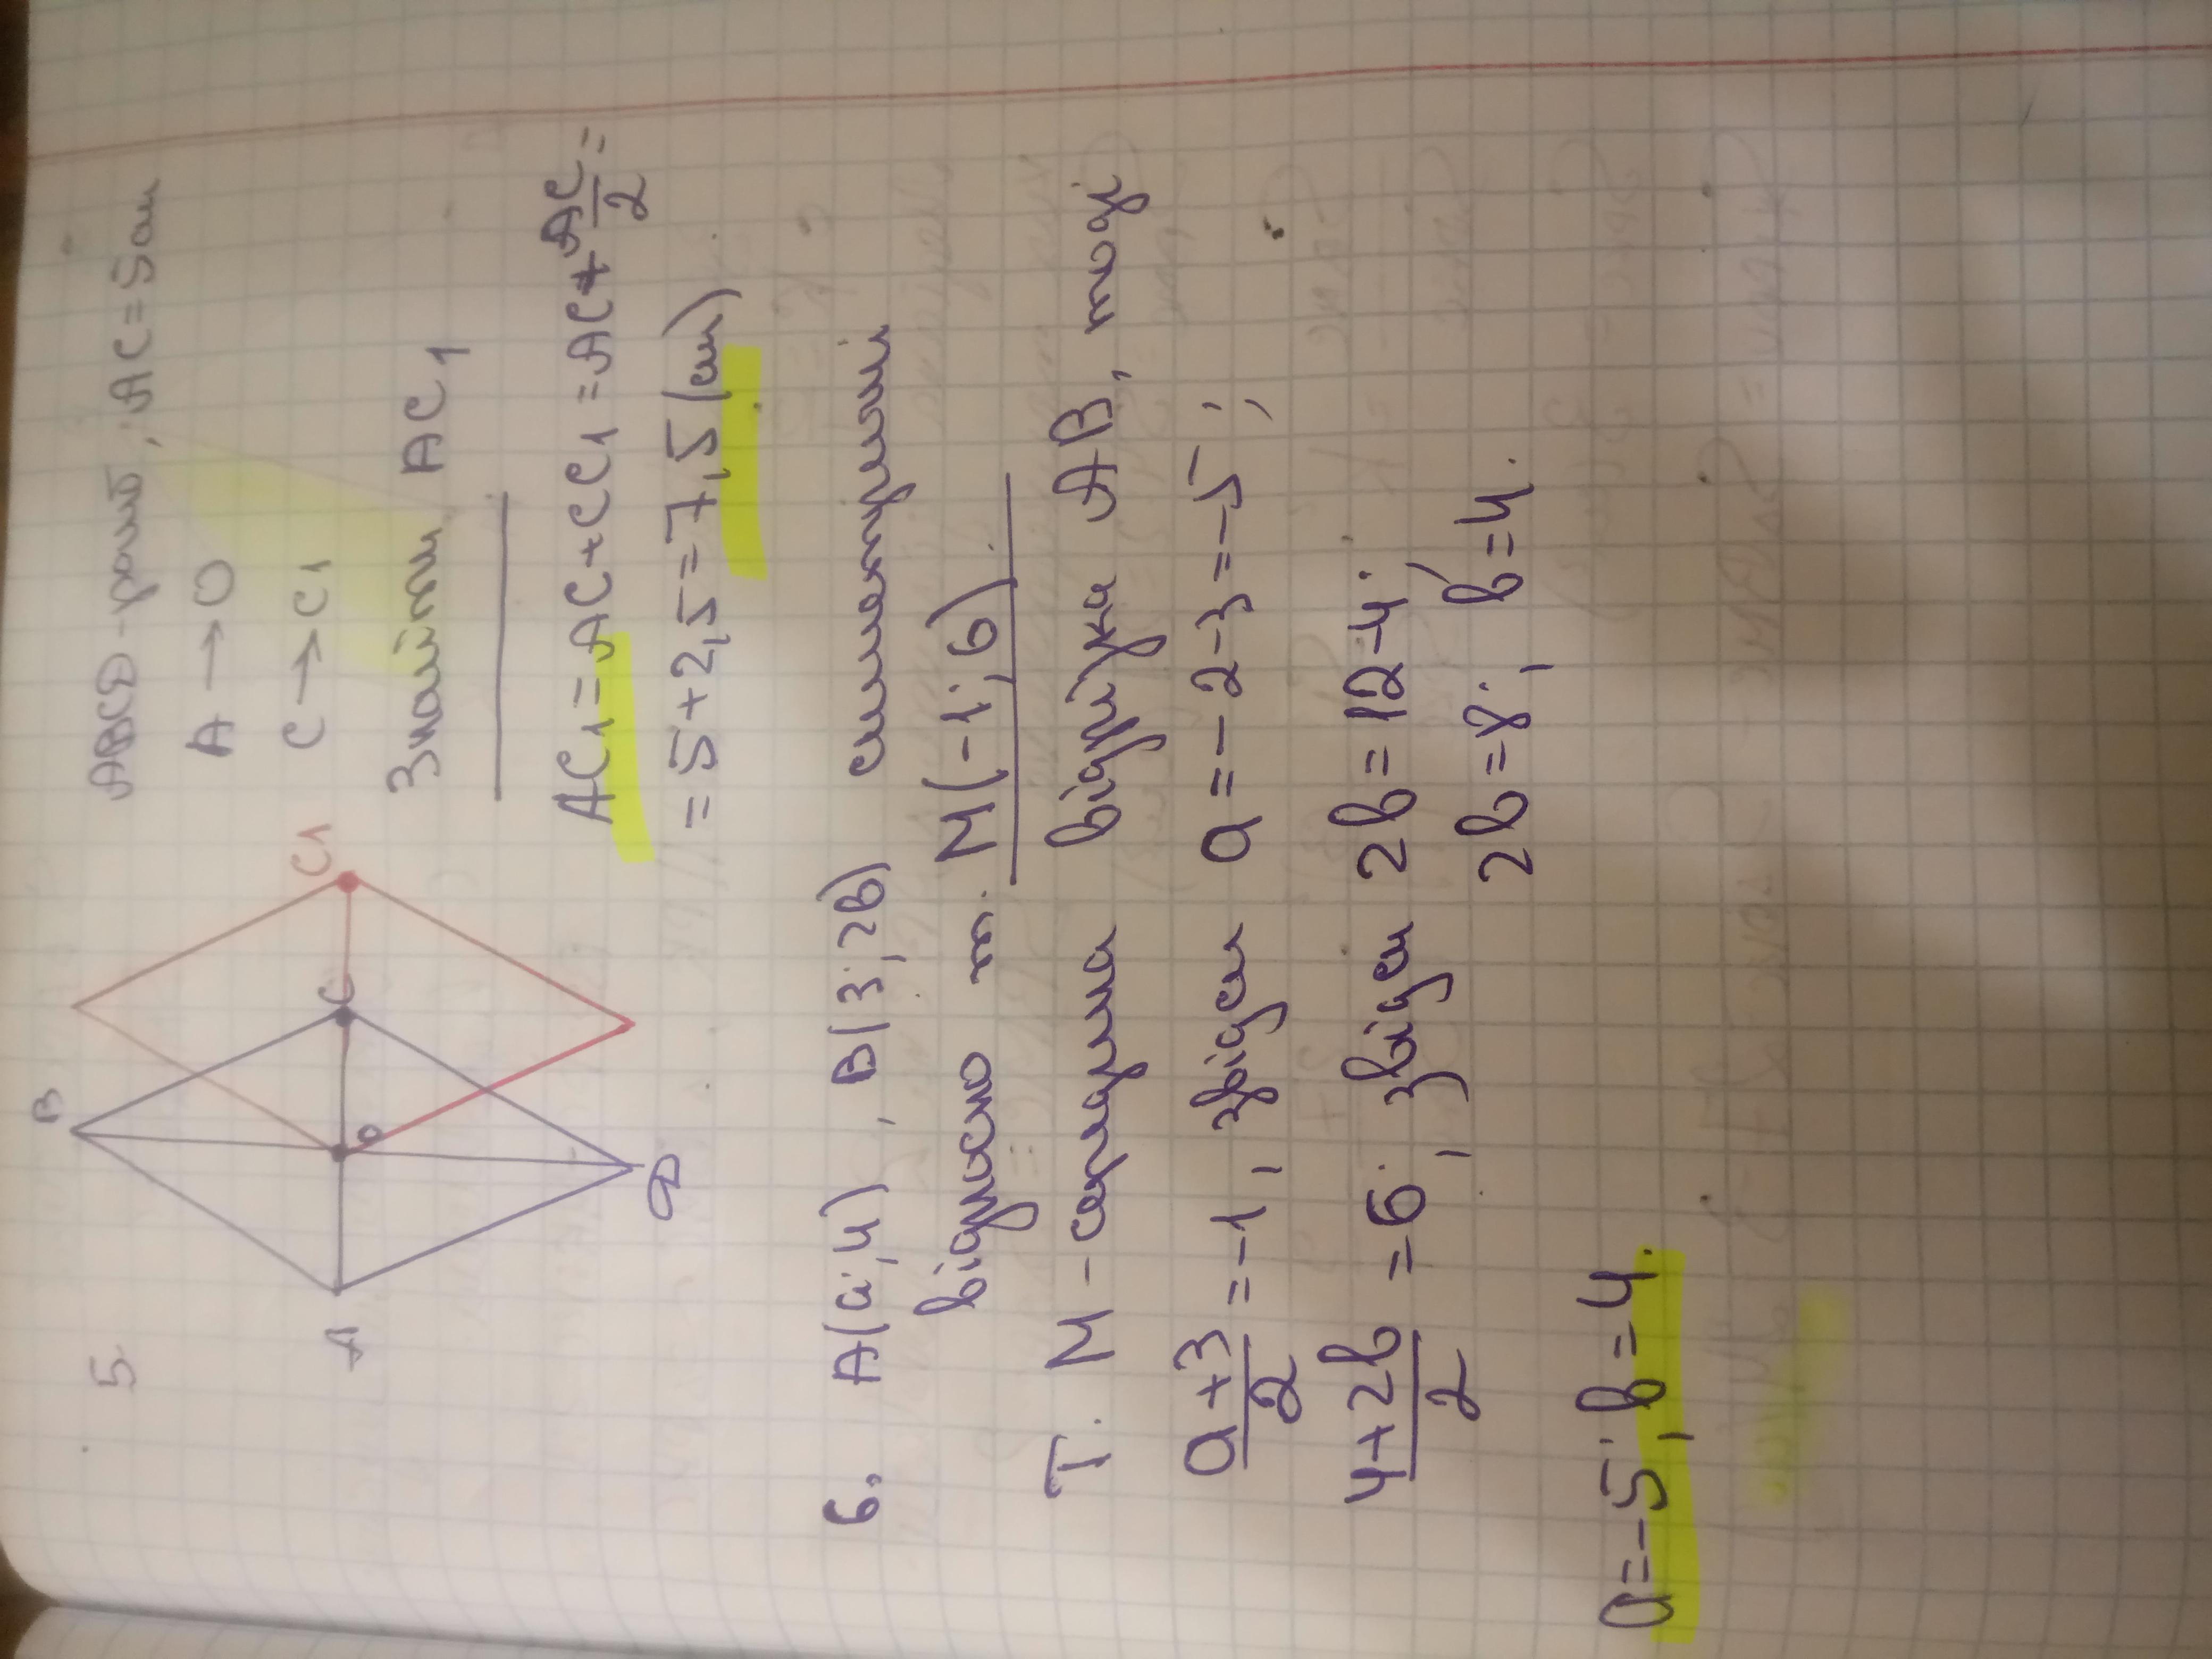 5.
B
A
O
C
C1
D
ABCD - ромб, AC = 5 см
A → O
C → C1
Знайти AC1
AC1 = AC + CC1 = AC + AC/2 =
= 5 + 2,5 = 7,5 (см)
6. A(a; 4), B(3; 2b) симетричні
відносно т. M(-1; 6).
Т. M - середина відрізка AB, тоді
a+3/2 = -1, звідси a = -2 - 3 = -5;
4+2b/2 = 6; звідси 2b = 12 - 4;
2b = 8; b = 4.
a = -5; b = 4.